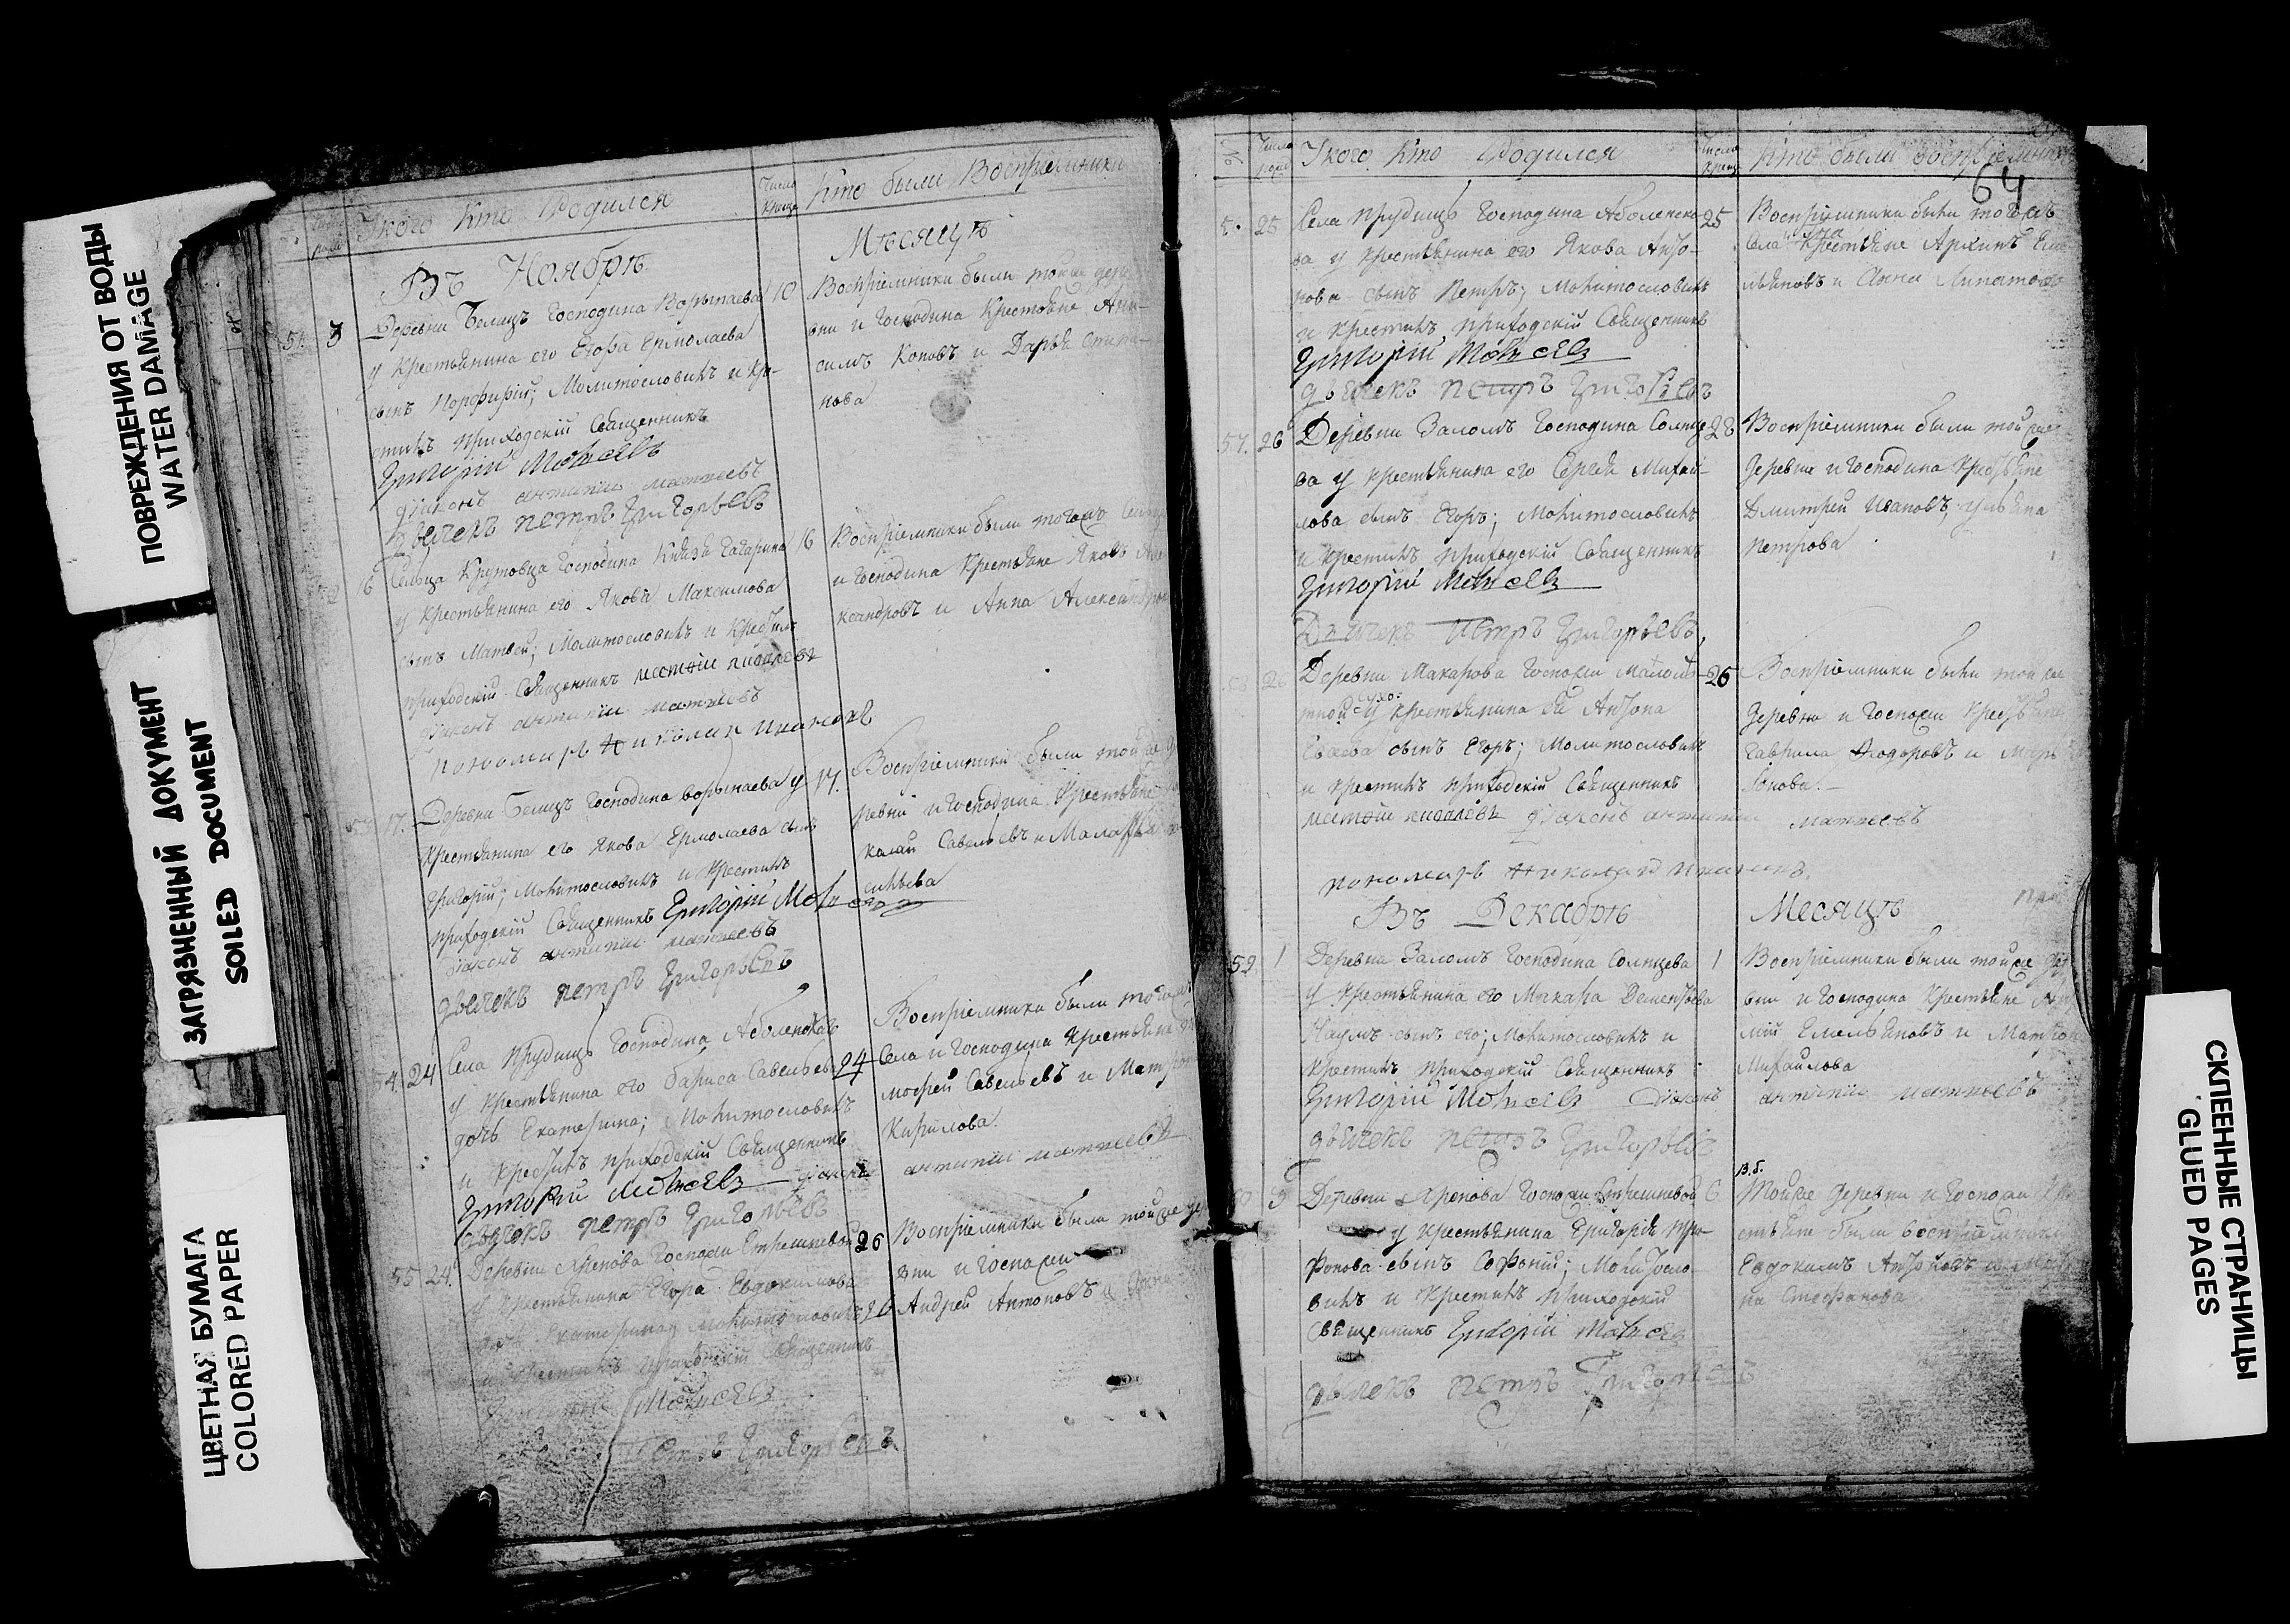 ПОВРЕЖДЕНИЯ ОТ ВОДЫ
WATER DAMAGE
ЗАГРЯЗНЕННЫЙ ДОКУМЕНТ
SOILED DOCUMENT
ЦВЕТНАЯ БУМАГА
COLORED PAPER
Укого Кто Родился
Кто были Восприемники
Въ Ноябрѣ
Мѣсяцѣ
51. 3 Деревни Белицъ Господина Ворыпаева 10
у Крестьянина его Егора Ермолаева
сынъ Порфирий; Молитословилъ и кре-
стилъ Приходскій Священникъ
Григорій Моисѣевъ
діаконъ антипій матѣевъ
дьячекъ петръ григорьевъ
Воспріемники были тойже дере
вни и Господина Крестьяне Ани-
симъ Коновъ и Дарья Степа-
нова
6 Сельца Крутовца Господина Князя Гагарина 16
у крестьянина его Якова Максимова
сынъ Матвей; Молитословилъ и Крестилъ
приходскій Священникъ
діаконъ антипій матѣевъ
пономарь николай ивановъ
Воспріемники были тогожъ
и Господина Крестьяне Яковъ Але
ксандровъ и Анна Александро
53 17. Деревни Белицъ Господина ворыпаева у 17.
крестьянина его Якова Ермолаева сынъ
Григорій; Молитословилъ и Крестилъ
приходскій Священникъ Григорій Моисѣевъ
діаконъ антипій матѣевъ
дьячекъ петръ григорьевъ
Воспріемники были тойже де
ревни и Господина Крестьяне
колай Савельевъ и Маланья
сильева
54. 24 Села Прудищъ Господина Аболенскаго
у крестьянина его бориса Савельева 24
дочь Екатерина; Молитословилъ
и Крестилъ приходскій Священникъ
Григорій Моисѣевъ діаконъ
дьячекъ петръ григорьевъ
Воспріемники были тогожъ
Села и Господина Крестьяне
мофей Савельевъ и Матрона
Кирилова.
антипій матѣевъ
55 24. Деревни Господжи Стрешневой 26
у крестьянина Егора Евдокимова
дочь Екатерина; молитословилъ 26
и крестилъ приходскій Священникъ
Моисѣевъ
петръ григорьевъ
Воспріемники были тойже дере
вни и Госпожи
Андрей Антоновъ и
64
Укого Кто Родился
Кто были Воспріемники
25 Села Прудищъ Господина Аболенска- 25
ва у Крестьянина его Якова Анто-
нова сынъ Петръ; Молитословилъ
и крестилъ приходскій Священникъ
Григорій Моисѣевъ
дьячекъ петръ григорьевъ
Воспріемники были тогожъ
Села Крестьяне Архипъ Еме
льяновъ и Анна Липатова
57. 26 Деревни Заломъ Господина Солнце- 28
ва у крестьянина его Сергея Михай-
лова сынъ Егоръ; Молитословилъ
и крестилъ приходскій Священникъ
Григорій Моисѣевъ
Дьячекъ петръ григорьевъ,
Воспріемники были тойже
Деревни и Господина Крестьяне
Дмитрей Ивановъ, ульяна
петрова
58 26 Деревни Макарова Госпожи 26
у крестьянина ей Антона
сынъ Егоръ; Молитословилъ
и крестилъ приходскій Священникъ
діаконъ антипій матѣевъ
пономарь николай ивановъ.
Воспріемники были тойже
Деревни и Госпожи Крестьяне
Гаврила Ѳедоровъ и
Въ Декабрѣ
Месяцѣ
59. 1 Деревни Заломъ Господина Солнцева 1
у Крестьянина его Макара Дементьева
Наумъ сынъ его; Молитословилъ и
крестилъ приходскій Священникъ
Григорій Моисѣевъ Діаконъ
дьячекъ петръ григорьевъ
Воспріемники были тойже дер
вни и Господина Крестьяне
Емельяновъ и Матрона
Михайлова
антипій матѣевъ
5 Деревни Госпожи Стрешневой 6
у крестьянина Григорія Три-
фонова сынъ Софоній; Молитосло-
вилъ и Крестилъ приходскій
Священникъ Григорій Моисѣевъ
дьячекъ петръ Григорьевъ
Тойже деревни и Госпожи Кре
стьяне были воспріемники
Евдокимъ Антоновъ и
на Стефанова
СКЛЕЕННЫЕ СТРАНИЦЫ
GLUED PAGES